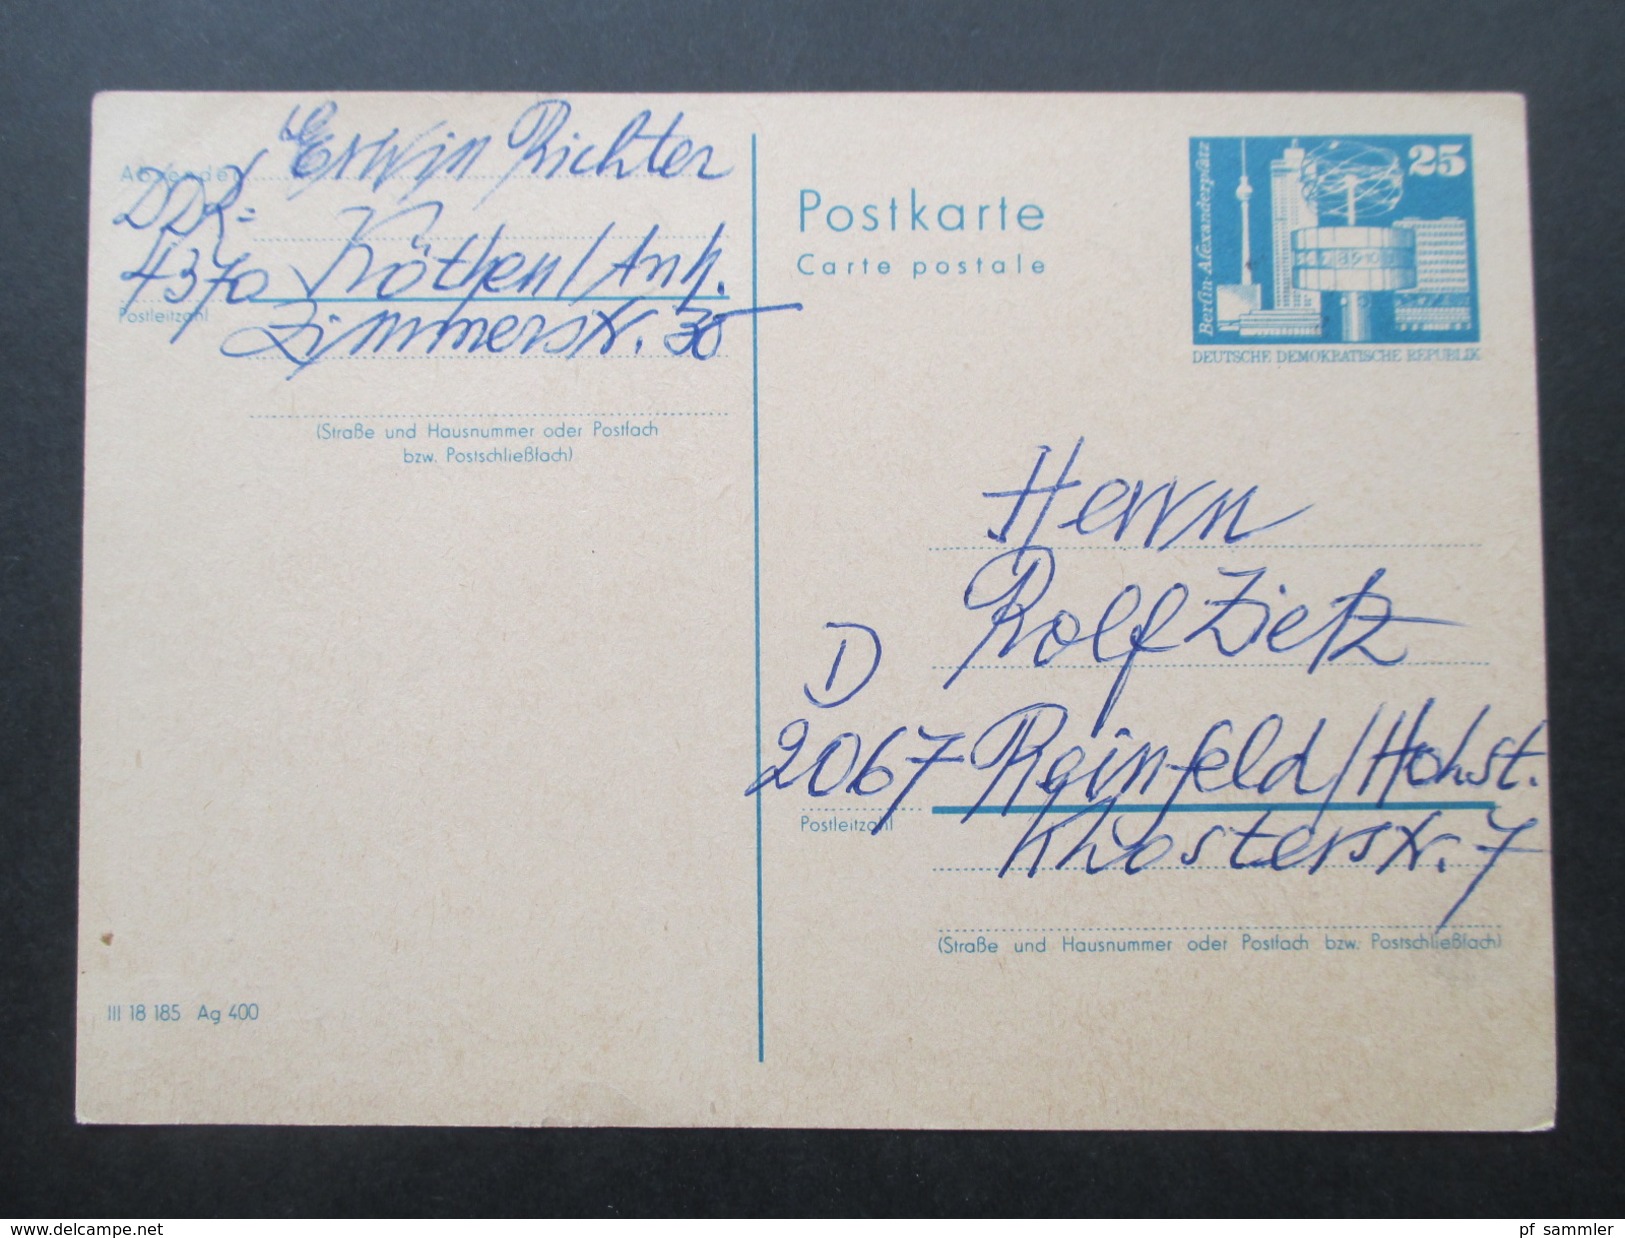 Erwin Richter
Absender
DDR-
4370 Köthen/Anh.
Postleitzahl
Zimmerstr. 30
(Straße und Hausnummer oder Postfach
bzw. Postschließfach)
III 18 185 Ag 400
Postkarte
Carte postale
25
Berlin-Alexanderplatz
DEUTSCHE DEMOKRATISCHE REPUBLIK
Herrn
Rolf Zietz
D
2067 Reinfeld/Holst.
Postleitzahl
Klosterstr. 7
(Straße und Hausnummer oder Postfach bzw. Postschließfach)
www.delcampe.net
pf_sammler